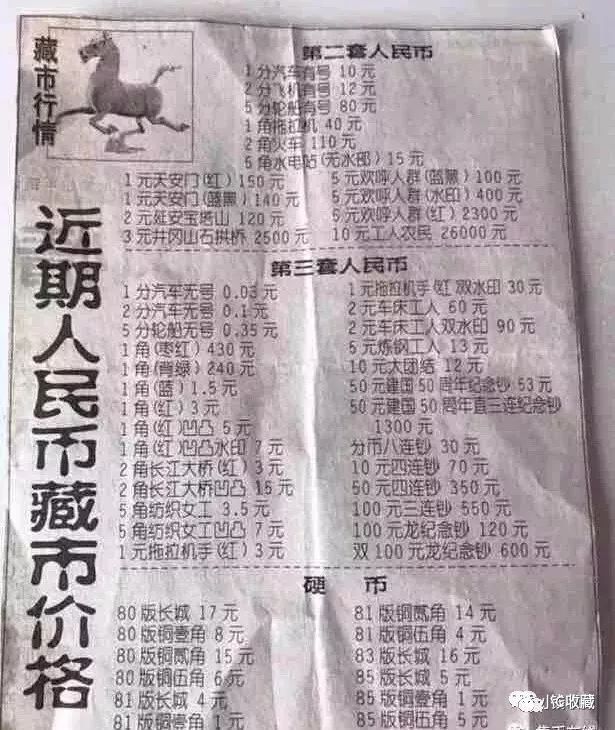 藏市行情
近期人民币藏市价格
第二套人民币
1分汽车有号 10元
2分飞机有号 12元
5分轮船有号 80元
1角拖拉机 40元
2角火车 110元
5角水电站(无水印) 15元
1元天安门(红) 150元
1元天安门(蓝黑) 140元
2元延安宝塔山 120元
3元井冈山石拱桥 2500元
5元欢呼人群(蓝黑) 100元
5元欢呼人群(水印) 400元
5元欢呼人群(红) 2300元
10元工人农民 26000元
第三套人民币
1分汽车无号 0.03元
2分汽车无号 0.1元
5分轮船无号 0.35元
1角(枣红) 430元
1角(背绿) 240元
1角(蓝) 1.5元
1角(红) 3元
1角(红)凹凸 5元
1角(红)凹凸水印 7元
2角长江大桥(红) 3元
2角长江大桥凹凸 15元
5角纺织女工 3.5元
5角纺织女工凹凸 7元
1元拖拉机手(红) 3元
1元拖拉机手(红)双水印 30元
2元车床工人 60元
2元车床工人双水印 90元
5元炼钢工人 13元
10元大团结 12元
50元建国50周年纪念钞 53元
50元建国50周年直三连纪念钞
1300元
分币八连钞 30元
10元四连钞 70元
50元四连钞 350元
100元三连钞 550元
100元龙纪念钞 120元
双100元龙纪念钞 600元
硬币
80版长城 17元
80版铜壹角 8元
80版铜贰角 15元
80版铜伍角 6元
81版长城 4元
81版铜壹角 1元
81版铜贰角 14元
81版铜伍角 4元
83版长城 16元
85版长城 5元
85版铜壹角 1元
85版铜伍角 5元